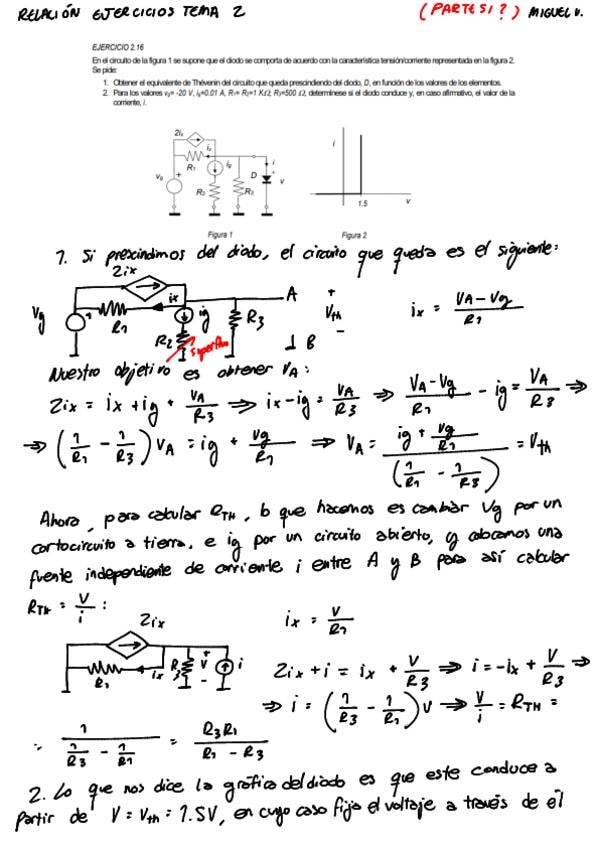 RELACIÓN EJERCICIOS TEMA 2 (PARTE SI?) MIGUEL V.
EJERCICIO 2.16
En el circuito de la figura 1 se supone que el diodo se comporta de acuerdo con la característica tensión/corriente representada en la figura 2.
Se pide:
1. Obtener el equivalente de Thévenin del circuito que queda prescindiendo del diodo, D, en función de los valores de los elementos.
2. Para los valores vg= -20 V, ig=0.01 A, R1= R2=1 KΩ, R3=500 Ω, determínese si el diodo conduce y, en caso afirmativo, el valor de la
corriente, i.
2ix
ix
R1
ig
vg
+
R2
R3
D
i
+
v
-
i
1.5
v
Figura 1 Figura 2
1. Si prescindimos del diodo, el circuito que queda es el siguiente:
2ix
Vg
R1
ix
ig
R2
superfluo
R3
A
+
Vth
-
B
ix = (VA - Vg)/R1
Nuestro objetivo es obtener VA:
2ix = ix + ig + VA/R3 ⇒ ix - ig = VA/R3 ⇒ (VA - Vg)/R1 - ig = VA/R3 ⇒
⇒ (1/R1 - 1/R3) VA = ig + Vg/R1 ⇒ VA = (ig + Vg/R1)/(1/R1 - 1/R3) = Vth
Ahora, para calcular RTH, lo que hacemos es cambiar Vg por un
cortocircuito a tierra, e ig por un circuito abierto, y colocamos una
fuente independiente de corriente i entre A y B para así calcular
RTH = V/i :
2ix
R1
ix
R3
+
V
-
i
ix = V/R1
2ix + i = ix + V/R3 ⇒ i = -ix + V/R3 ⇒
⇒ i = (1/R3 - 1/R1) V ⇒ V/i = RTH =
= 1/(1/R3 - 1/R1) = R3R1/(R1 - R3)
2. Lo que nos dice la gráfica del diodo es que este conduce a
partir de V = Vth = 1.5V, en cuyo caso fija el voltaje a través de él